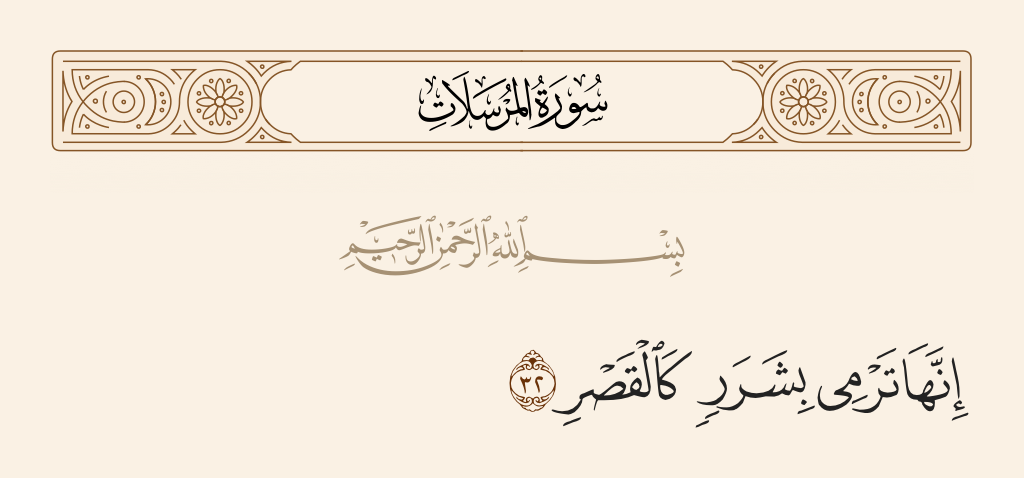 سُورَةُ المُرْسَلَاتِ
بِسْمِ ٱللَّهِ ٱلرَّحْمَٰنِ ٱلرَّحِيمِ
إِنَّهَا تَرْمِى بِشَرَرٍ كَٱلْقَصْرِ ٣٢